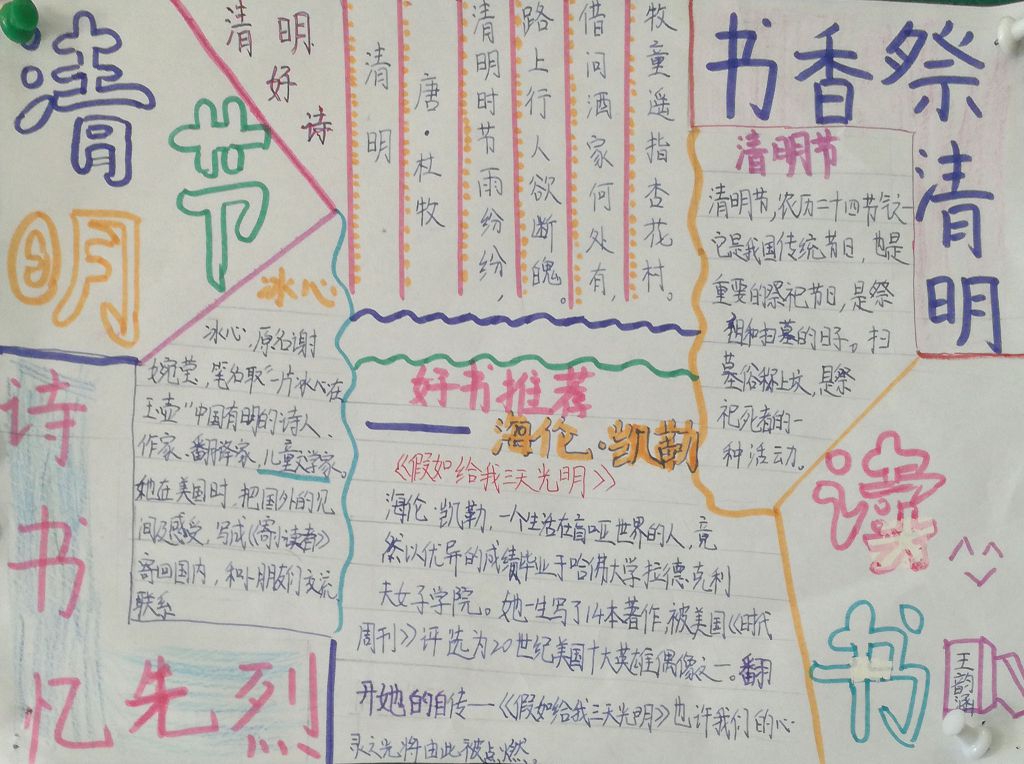 清
明
节
清明
好
诗
清明
唐·杜牧
清明时节雨纷纷，
路上行人欲断魂。
借问酒家何处有，
牧童遥指杏花村。
书香祭
清明
清明节
清明节，农历二十四节气之一
它是我国传统节日，也是
重要的祭祀节日，是祭
祖和扫墓的日子。扫
墓俗称上坟，是祭
祀死者的一
种活动。
冰心
冰心，原名谢
婉莹，笔名取“一片冰心在
玉壶”中国有明的诗人、
作家、翻译家、儿童文学家。
她在美国时，把国外的见
闻及感受，写成《寄小读者》
寄回国内，和小朋友们交流
联系
好书推荐
海伦·凯勒
《假如给我三天光明》
海伦·凯勒，一个生活在盲哑世界的人，竟
然以优异的成绩毕业于哈佛大学拉德克利
夫女子学院。她一生写了14本著作，被美国《时代
周刊》评选为20世纪美国十大英雄偶像之一。翻
开她的自传——《假如给我三天光明》也许我们的心
灵之光将由此被点燃。
诗
书
忆先烈
读
书
王韵涵